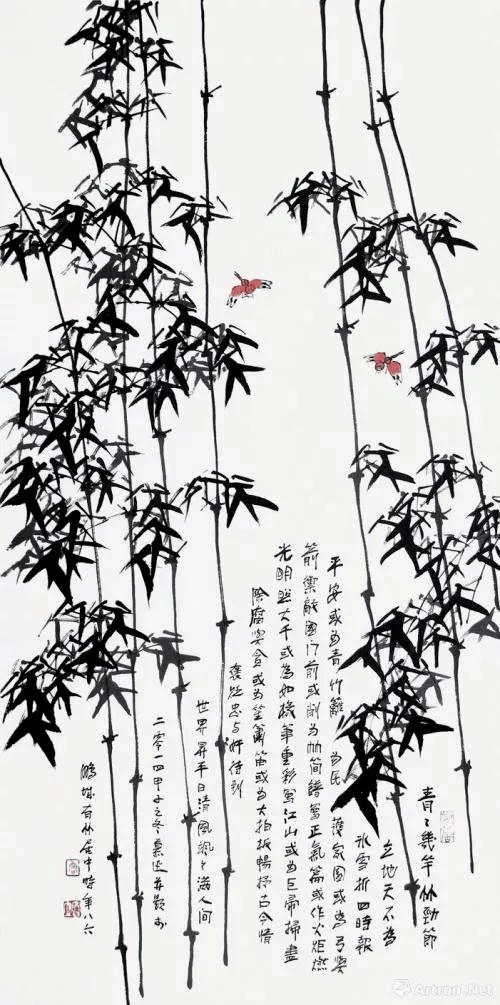 青々几竿竹勁節
立地天不為
冰雪折四時報
平安或為青竹籬為民護家園或為弓與
箭禦敵國門前或削為竹簡譜寫正氣篇或作火炬燃
光明照大千或為如椽筆重彩寫江山或為巨帚掃盡
除腐與貪或為笙簫笛或為大拍板暢抒古今情
褒貶忠与奸待到
世界昇平日清風颯々滿人間
二零一四甲午之冬慕述并題於
鵬城有竹居中時年八六
Artron.Net